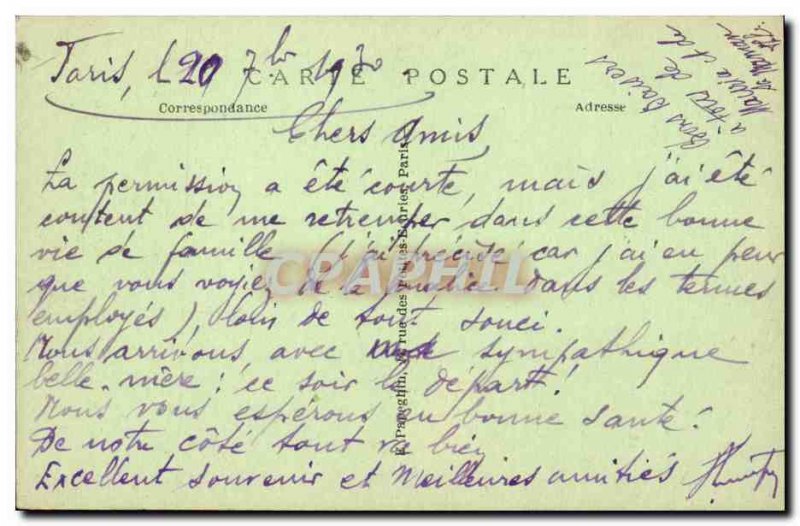 Paris, l 20 7bre 1930.
CARTE POSTALE
Correspondance
Adresse
Chers Amis
La permission a été courte, mais j'ai été
content de me retremper dans cette bonne
vie de famille (j'ai précisé, car j'ai eu peur
que vous voyiez de la malice dans les termes
employés), loin de tout souci.
Nous arrivons avec sympathique
belle-mère : ce soir le départ!
Nous vous espérons en bonne santé!
De notre côté tout va bien
Excellent souvenir et Meilleures amitiés
Bons Baisers
à tous de
et de
Maman
E. Papeghin, rue des Petites-Écuries, Paris
CPAPHIL